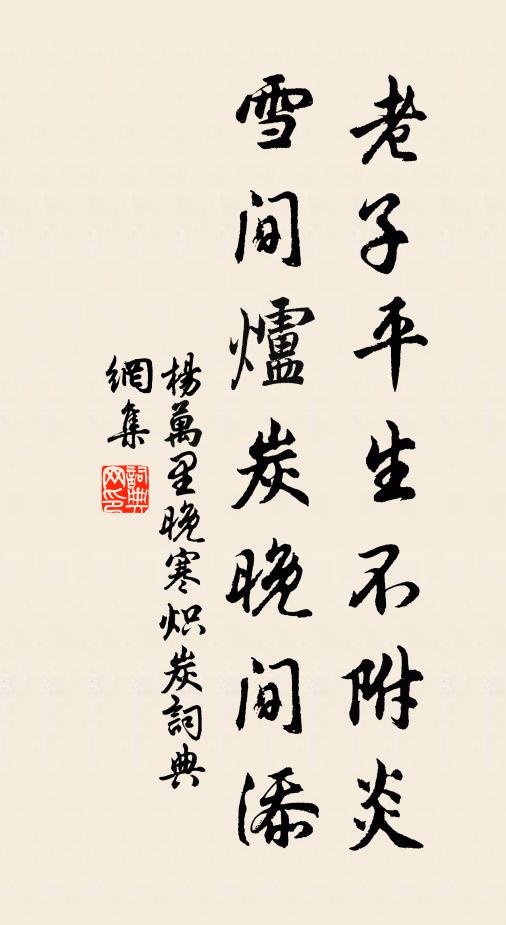 老子平生不附炎
雪间爐炭晚间添
楊萬里晚寒炽炭詞典
網集
詞典網印